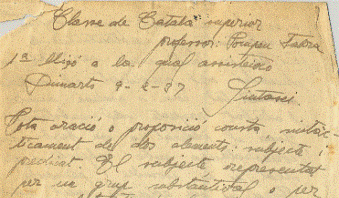 Classe de Català superior
professor: Pompeu Fabra
1ª lliçó a la qual assisteixo
Dimarts 9-2-37
Tota oració o proposició consta, sintàc-
ticament de dos elements: subjecte i
predicat. El subjecte representat
per un grup substantival o per